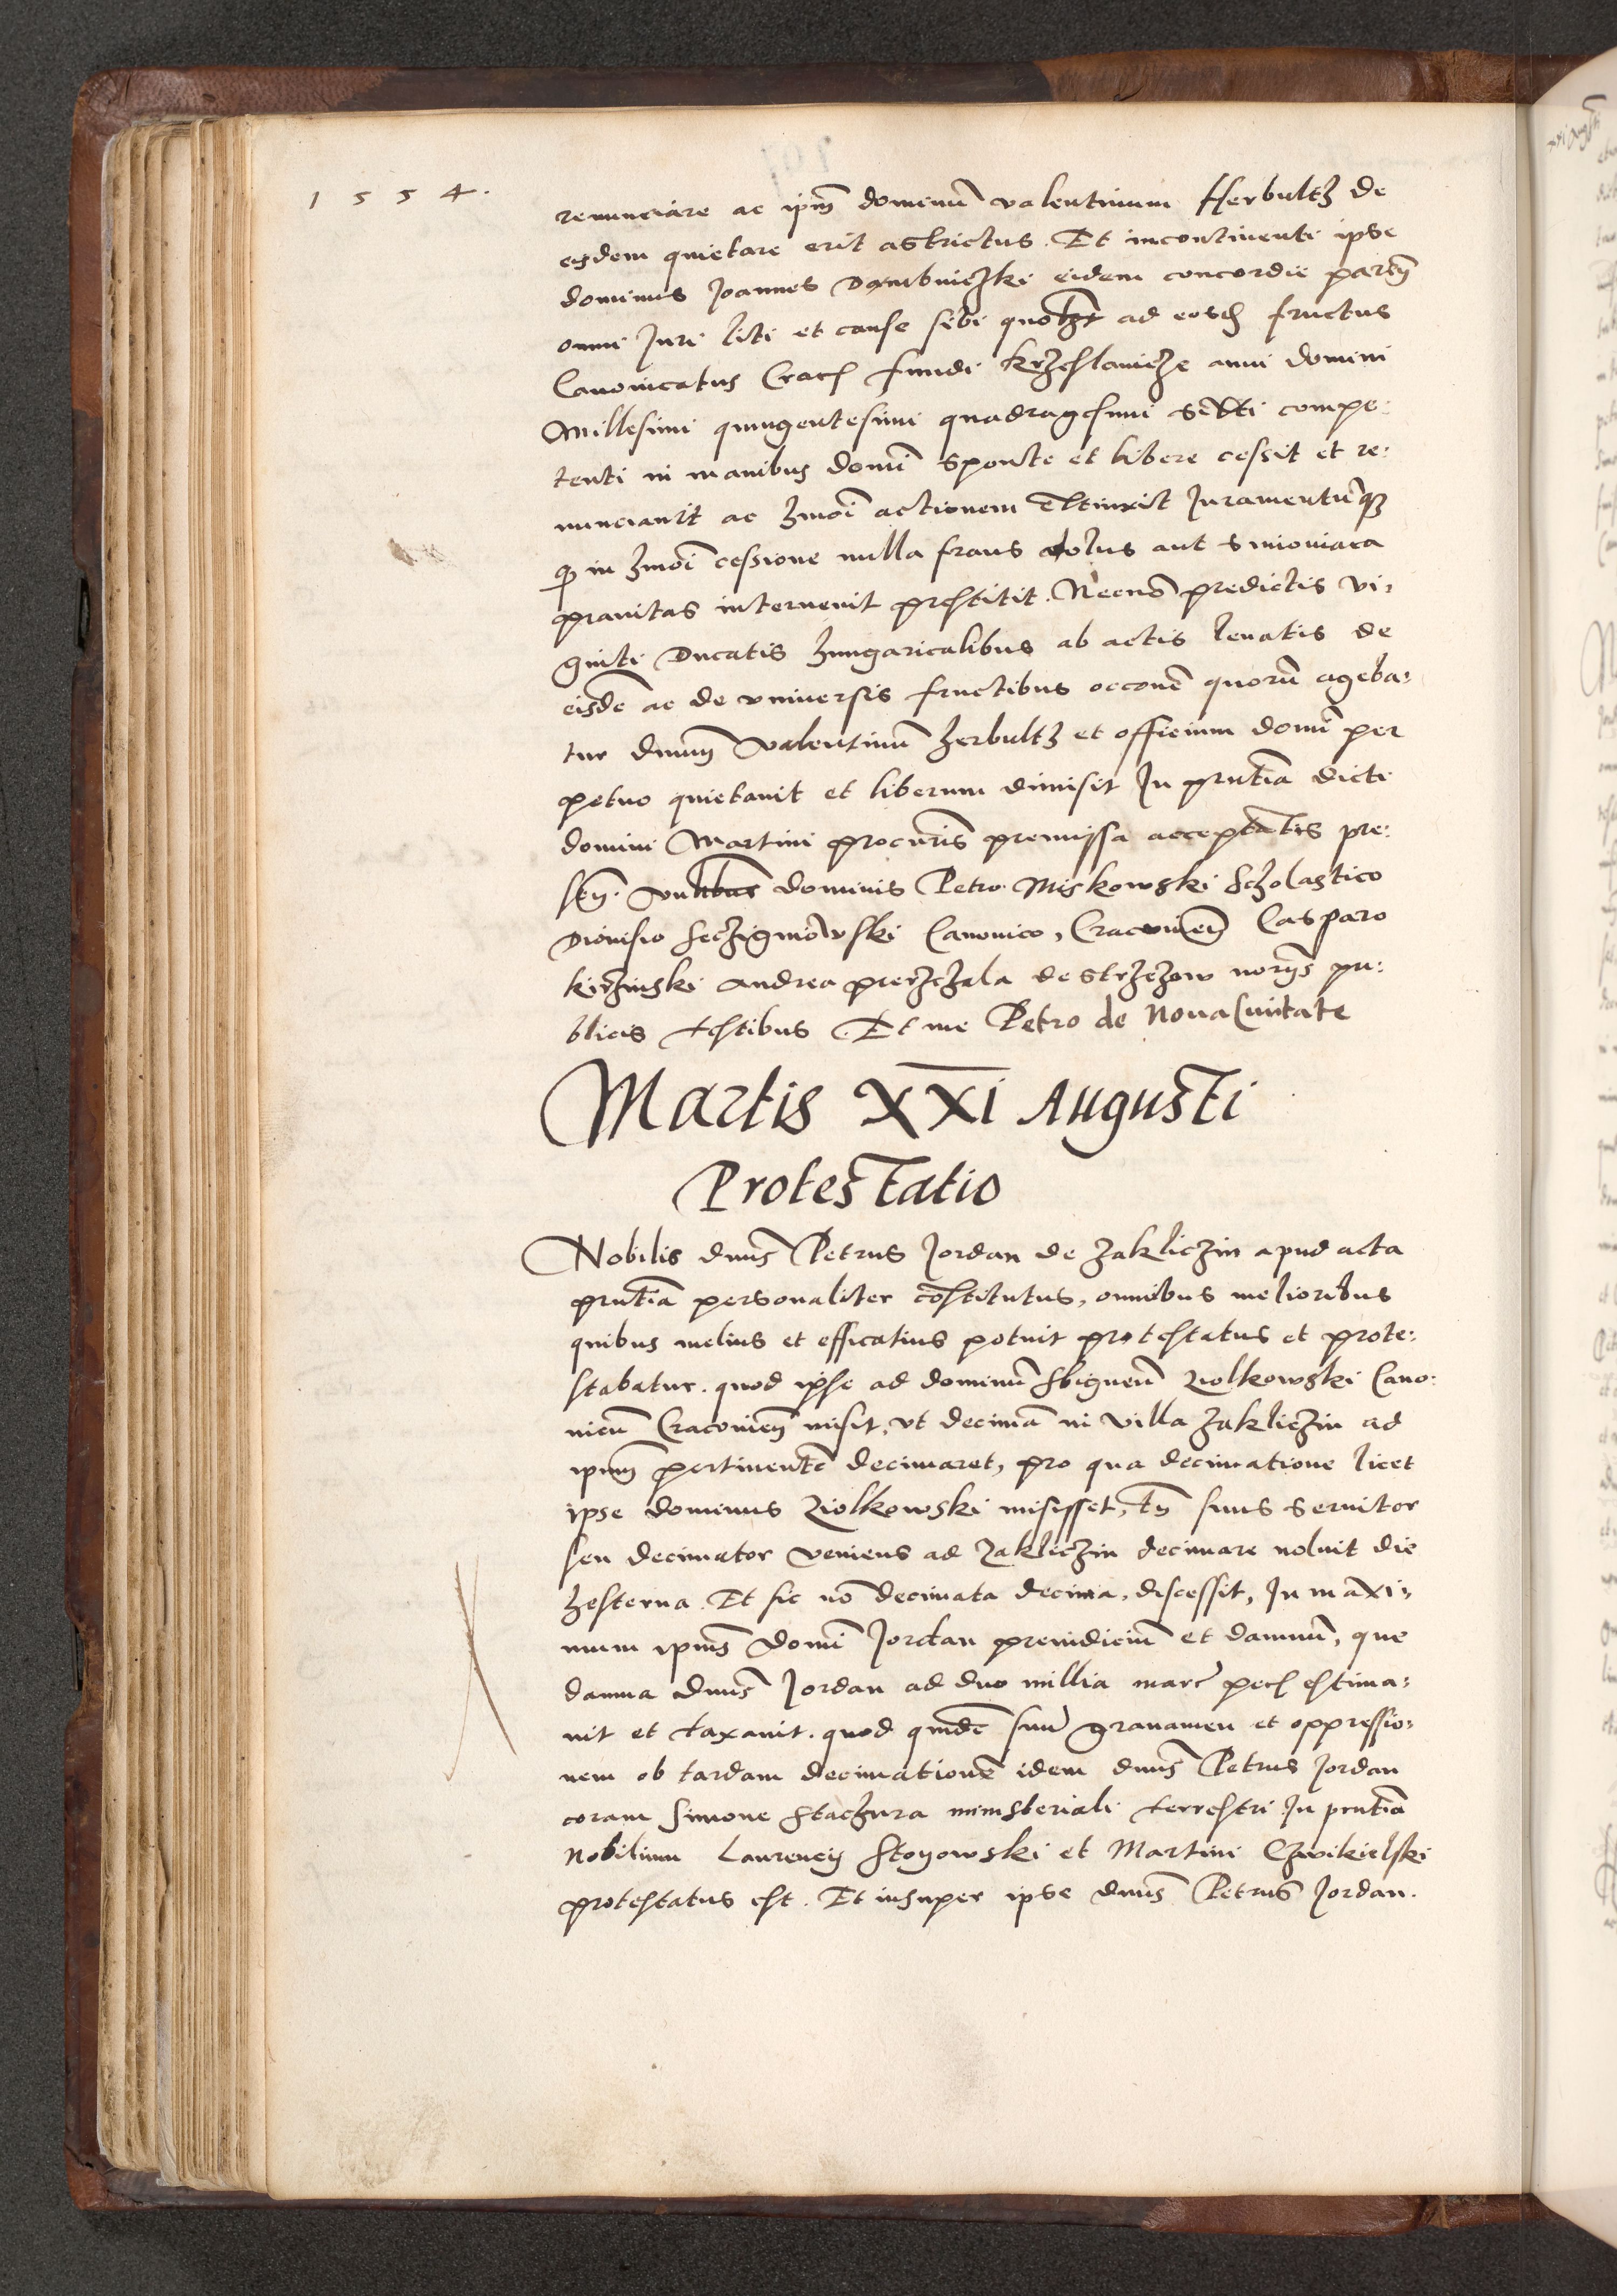 1 5 5 4 .
renunciare ac ipm̄ dominū valentinum Herbultʒ de
eisdem quietare erit astrictus. Et incontinenti ipse
dominus Joannes Dambniczki eidem concordie pareñ
omni Juri liti et cause sibi ad eosd fructus
Canonicatus Crac fundi Krzeslawicze anni domini
Millesimi quingentesimi quadragesimi compe:
tenti in manibus domī sponte et libere cessit et re:
nunciavit ac hmōi actionem extinxit Juramentūqз
ꝙ in hmōi cessione nulla fraus dolus aut simoniaca
pravitas intervenit prestitit. Necnō predictis vi,
ginti Ducatis hungaricalibus ab actis levatis de
eisdē ac de universis fructibus occonē quorū ageba:
tur dnum̄ valentinū herbultʒ et officium domī per
petuo quietavit et liberum dimisit In pn̄tia dicti
domini Martini procuris premissa acceptatis pre:
señ. dominis Petro Miskowski Scholastico
Dionisio Seczigniowski Canonico, Cracovieñ Casparo
kirzinski Andrea przeczala de Strzezow noriis pu:
blicis testibus Et me Petro de Nova Civitate
Martis XXI Augusti
Protestatio
Nobilis dnus̄ Petrus Jordan de Zakliczin apud acta
pn̄tia personaliter cōstitutus, omnibus melioribus
quibus melius et efficatius potuit protestatus et prote:
stabatur. quod ipse ad dominū Sbigneū Ziolkowski Cano:
nicū Cracovieñ misit, ut decimā in villa Zakliczin ad
ipum̄ pertinentē decimaret, pro qua decimatione licet
ipse dominus Ziolkowski misisset, tn̄ suus servitor
seu decimator veniens ad Zakliczin decimare noluit die
hesterna. Et sic nō decimata decima, discessit, In maxi,
mum ipius̄ domī Jordan preiudiciū et damnū, que
damna dnus̄ Jordan ad duo millia marc pec estima,
vit et taxavit. quod quidē suū gravamen et oppressio,
nem ob tardam decimationē idem dnus̄ Petrus Jordan
coram Simone Staczura ministeriali terrestri In pn̄tia
Nobilium Laurencij Stogowski et Martini Czwikielski
protestatus est. Et insuper ipse dnus̄ Petrus Jordan.